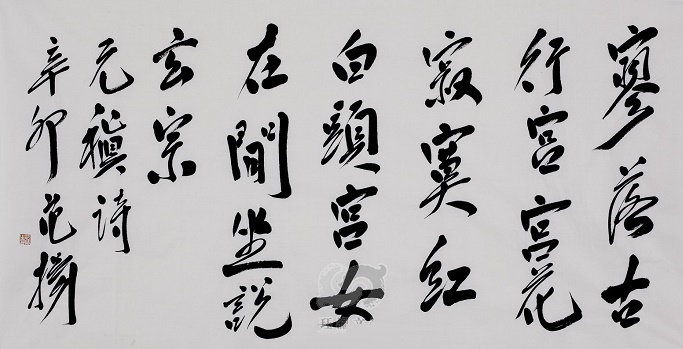 寥落古
行宮宮花
寂寞紅
白頭宮女
在閒坐説
玄宗
元稹诗
辛卯范揚